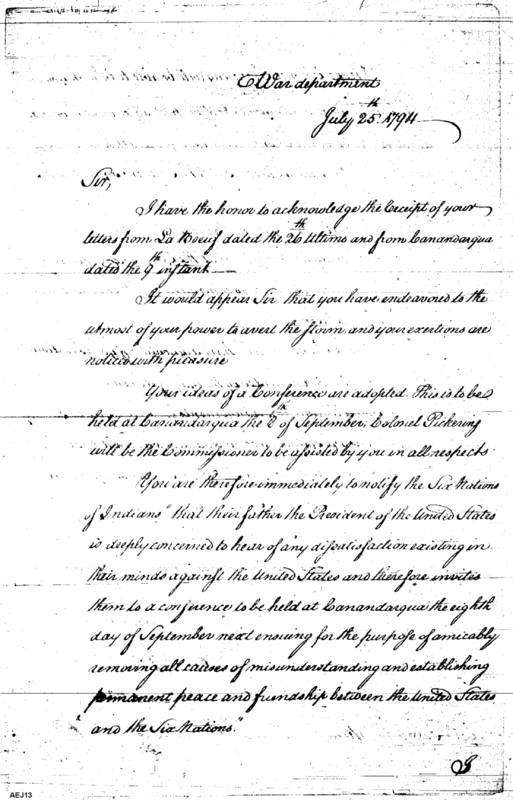 War department
July 25th. 1794
Sir,
I have the honor to acknowledge the Receipt of your
letters from Le Boeuf dated the 26th Ultimo and from Canandarqua
dated the 9th instant
It would appear Sir that you have endeavored to the
utmost of your power to avert the storm, and your exertions are
noticed with pleasure
Your ideas of a Conference are adopted. This is to be
held at Canandarqua the 8th of September, Colonel Pickering
will be the Commissioner to be assisted by you in all respects
You are therefore immediately to notify the Six Nations
of Indians "that their father the President of the United States
is deeply concerned to hear of any dissatisfaction existing in
their minds against the United States and therefore invites
them to a conference to be held at Canandarqua the eighth
day of September next ensuing for the purpose of amicably
removing all causes of misunderstanding and establishing
permanent peace and friendship between the United States
and the Six Nations."
AEJ13